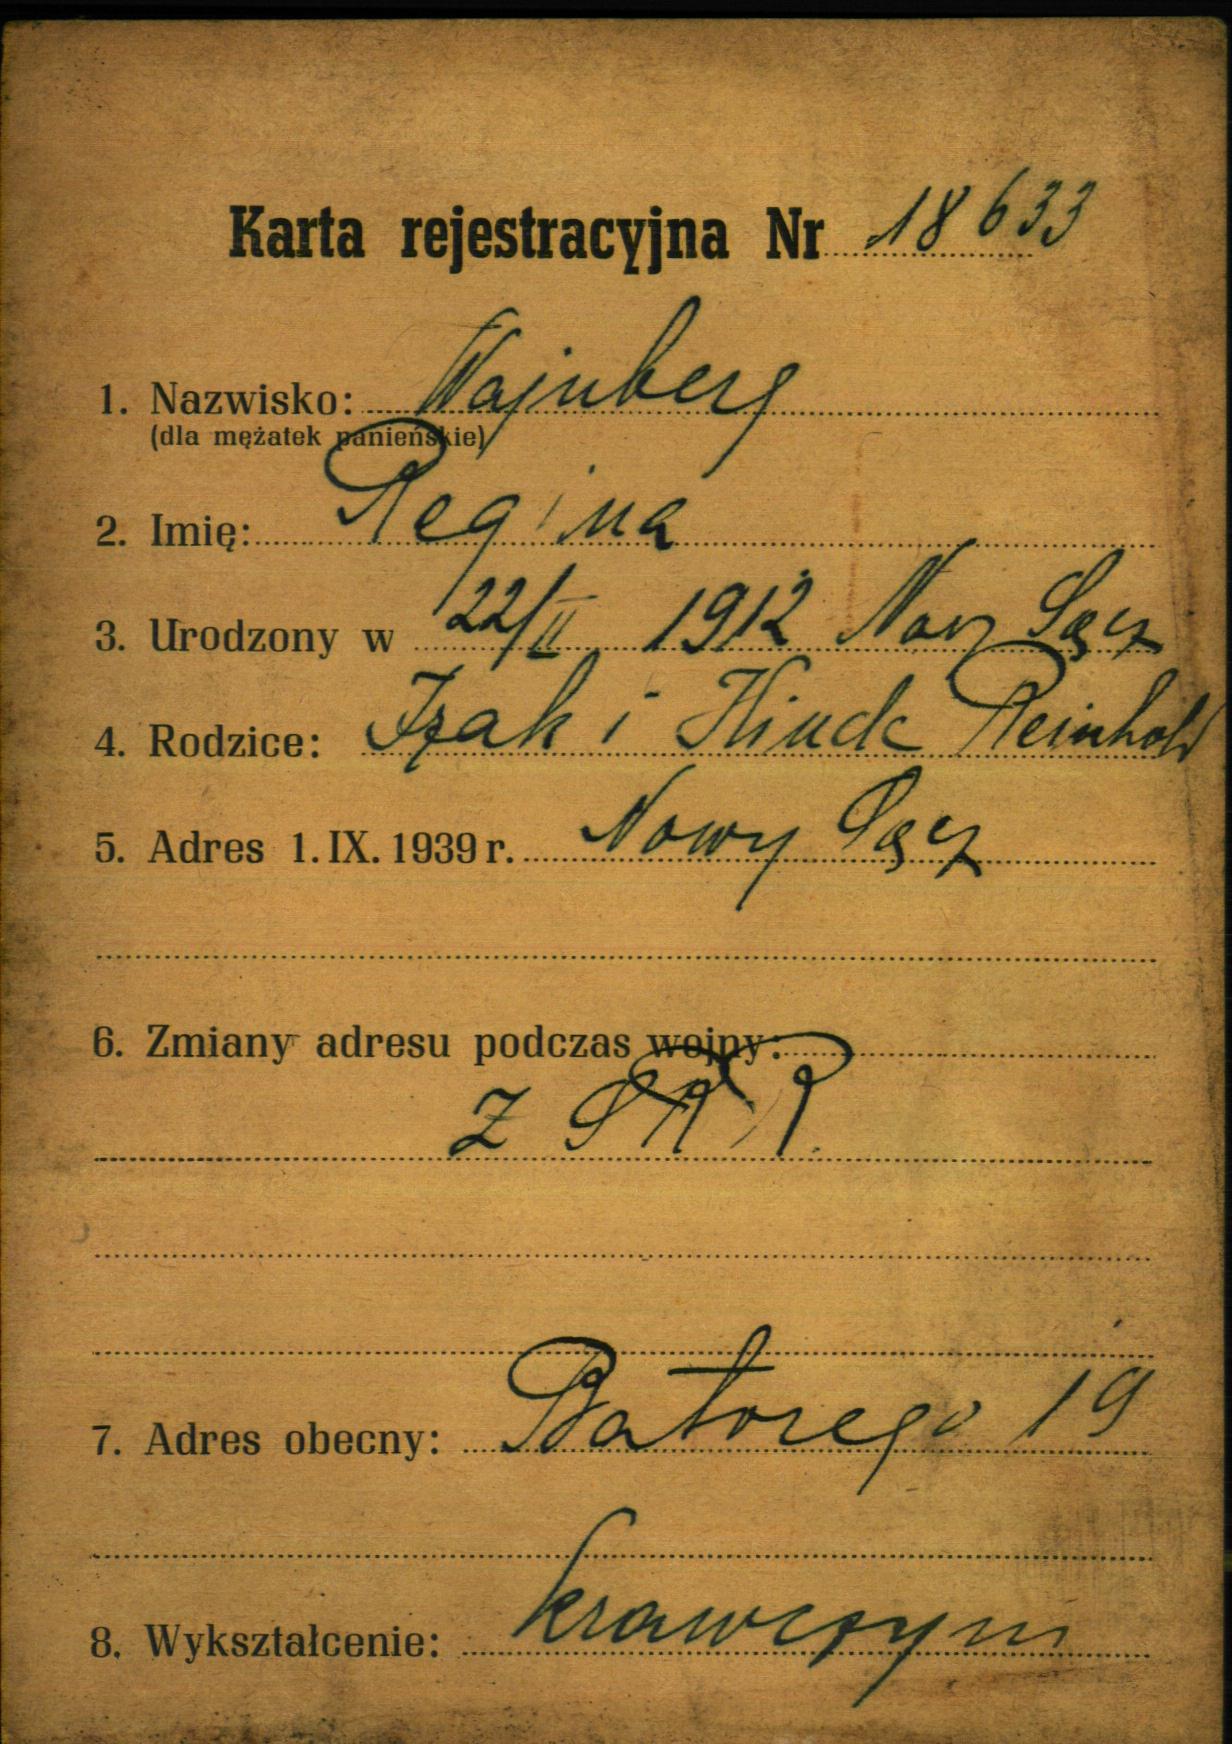 Karta rejestracyjna Nr 18633
1. Nazwisko: Wajnberg
(dla mężatek panieńskie)
2. Imię: Regina
3. Urodzony w 22/II 1912 Nowy Sącz
4. Rodzice: Izak i Hinde Reinhold
5. Adres 1. IX. 1939 r. Nowy Sącz
6. Zmiany adresu podczas wojny:
Z S R R.
7. Adres obecny: Batorego 19
8. Wykształcenie: krawczyni